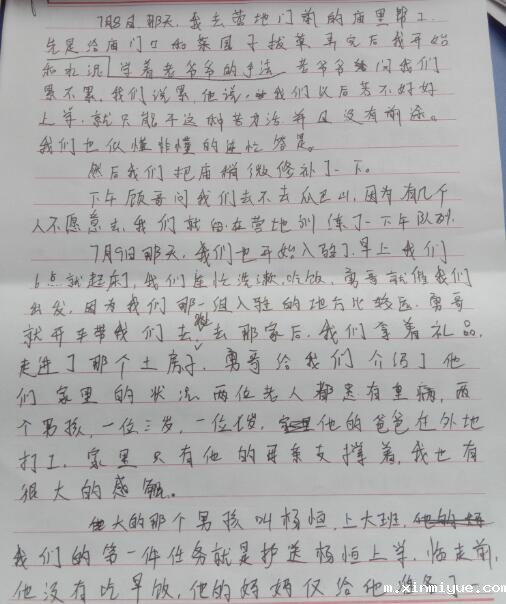 7月8日那天，我去营地门前的庙里帮工，
先是给庙门口和菜园子拔草，弄完后我开始
和水泥，学着老爷爷的手法，老爷爷问我们
累不累，我们说累，他说，我们以后若不好好
上学，就只能干这种苦力活并且没有前途。
我们也似懂非懂的连忙答是。
然后我们把庙稍微修补了一下。
下午顾哥问我们去不去爬山，因为有几个
人不愿意去，我们就留在营地训练了一下午队列。
7月9日那天，我们也开始入驻了，早上我们
6点就起床了，我们连忙洗漱，吃饭，勇哥就催我们
出发，因为我们那一组入驻的地方比较远，勇哥
就开车带我们去，去那家后，我们拿着礼品，
走进了那个土房子，勇哥给我们介绍了他
们家里的状况，两位老人都患有重病，两
个男孩，一位三岁，一位岁，他的爸爸在外地
打工，家里只有他的母亲支撑着，我也有
很大的感触。
大的那个男孩叫杨恒，上大班，
我们的第一件任务就是护送杨恒上学，临走前，
他没有吃早饭，他的妈妈仅给他准备了
m.xinmiyue.com